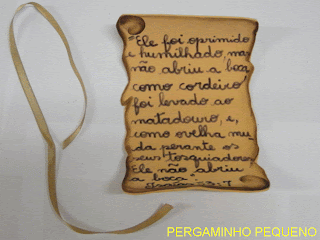 "Ele foi oprimido
e humilhado, mas
não abriu a boca
como cordeiro
foi levado ao
matadouro, e,
como ovelha mu
da perante os
seus tosquiadores
Ele não abriu
a boca".
Isaías 53:7
PERGAMINHO PEQUENO